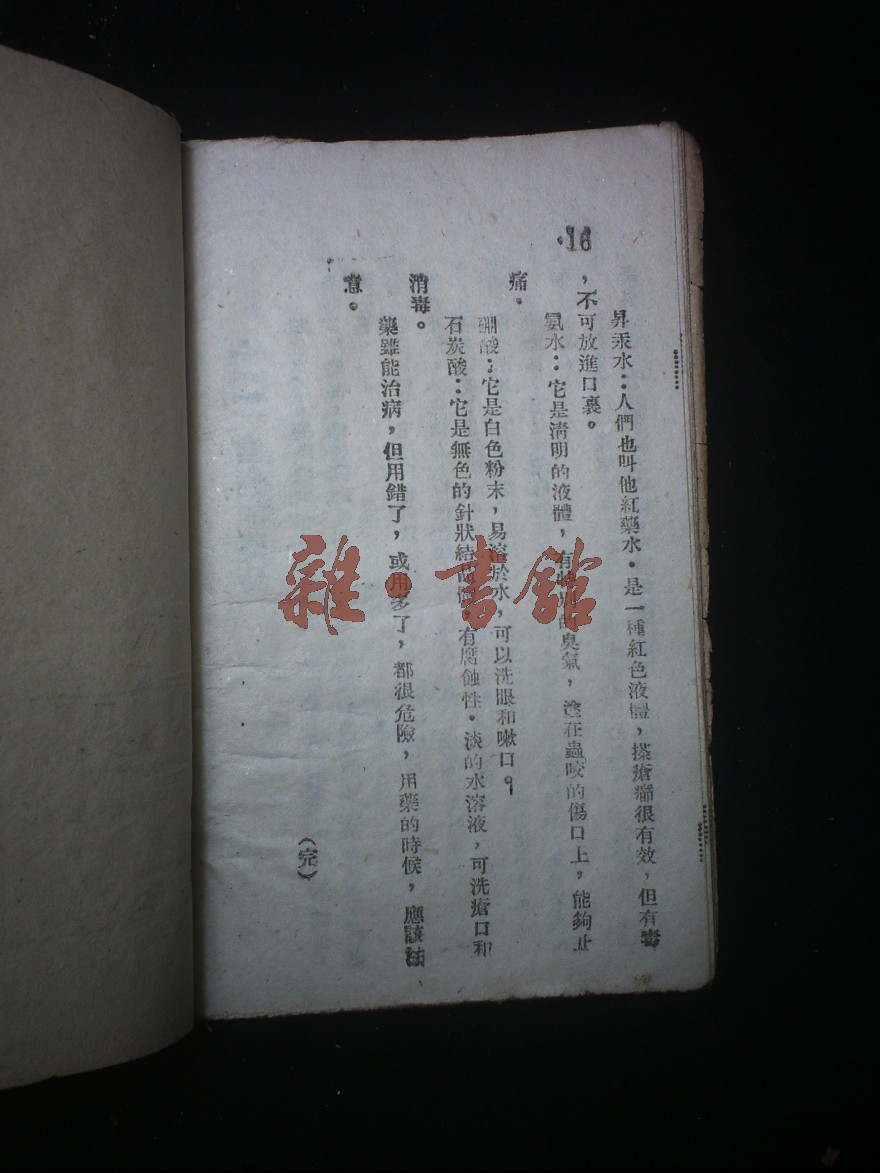 16
昇汞水：人們也叫他紅藥水・是一種紅色液體，搽瘡癤很有效，但有毒
，不可放進口裏。
氨水：它是清明的液體，有特別的臭氣，塗在蟲咬的傷口上，能夠止
痛。
硼酸：它是白色粉末，易溶於水，可以洗眼和嗽口。
石炭酸：它是無色的針狀結晶體，有腐蝕性。淡的水溶液，可洗瘡口和
消毒。
藥雖能治病，但用錯了，或用多了，都很危險，用藥的時候，應該注
意。
（完）
雜・書館